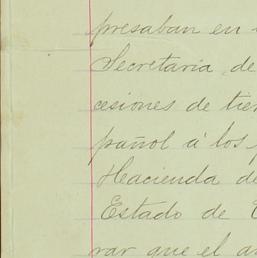 presaban en
Secretaria de
cesiones de
pañol á los
Hacienda
Estado de
rar que el